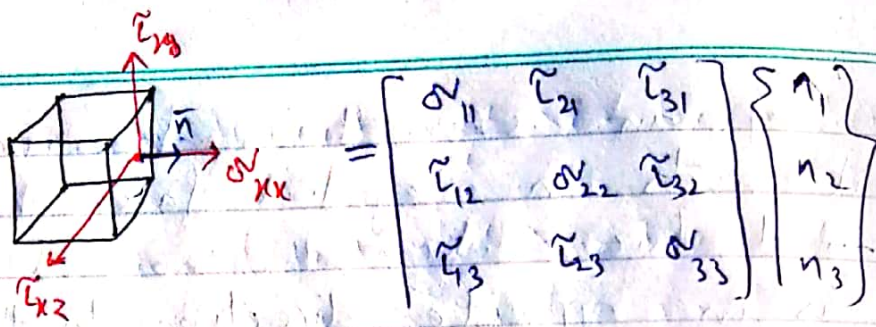 τ̃xy
n̄
σxx
τ̃xz
= [ σ11 τ̃21 τ̃31 ] { n1 }
[ τ̃12 σ22 τ̃32 ] { n2 }
[ τ̃13 τ̃23 σ33 ] { n3 }